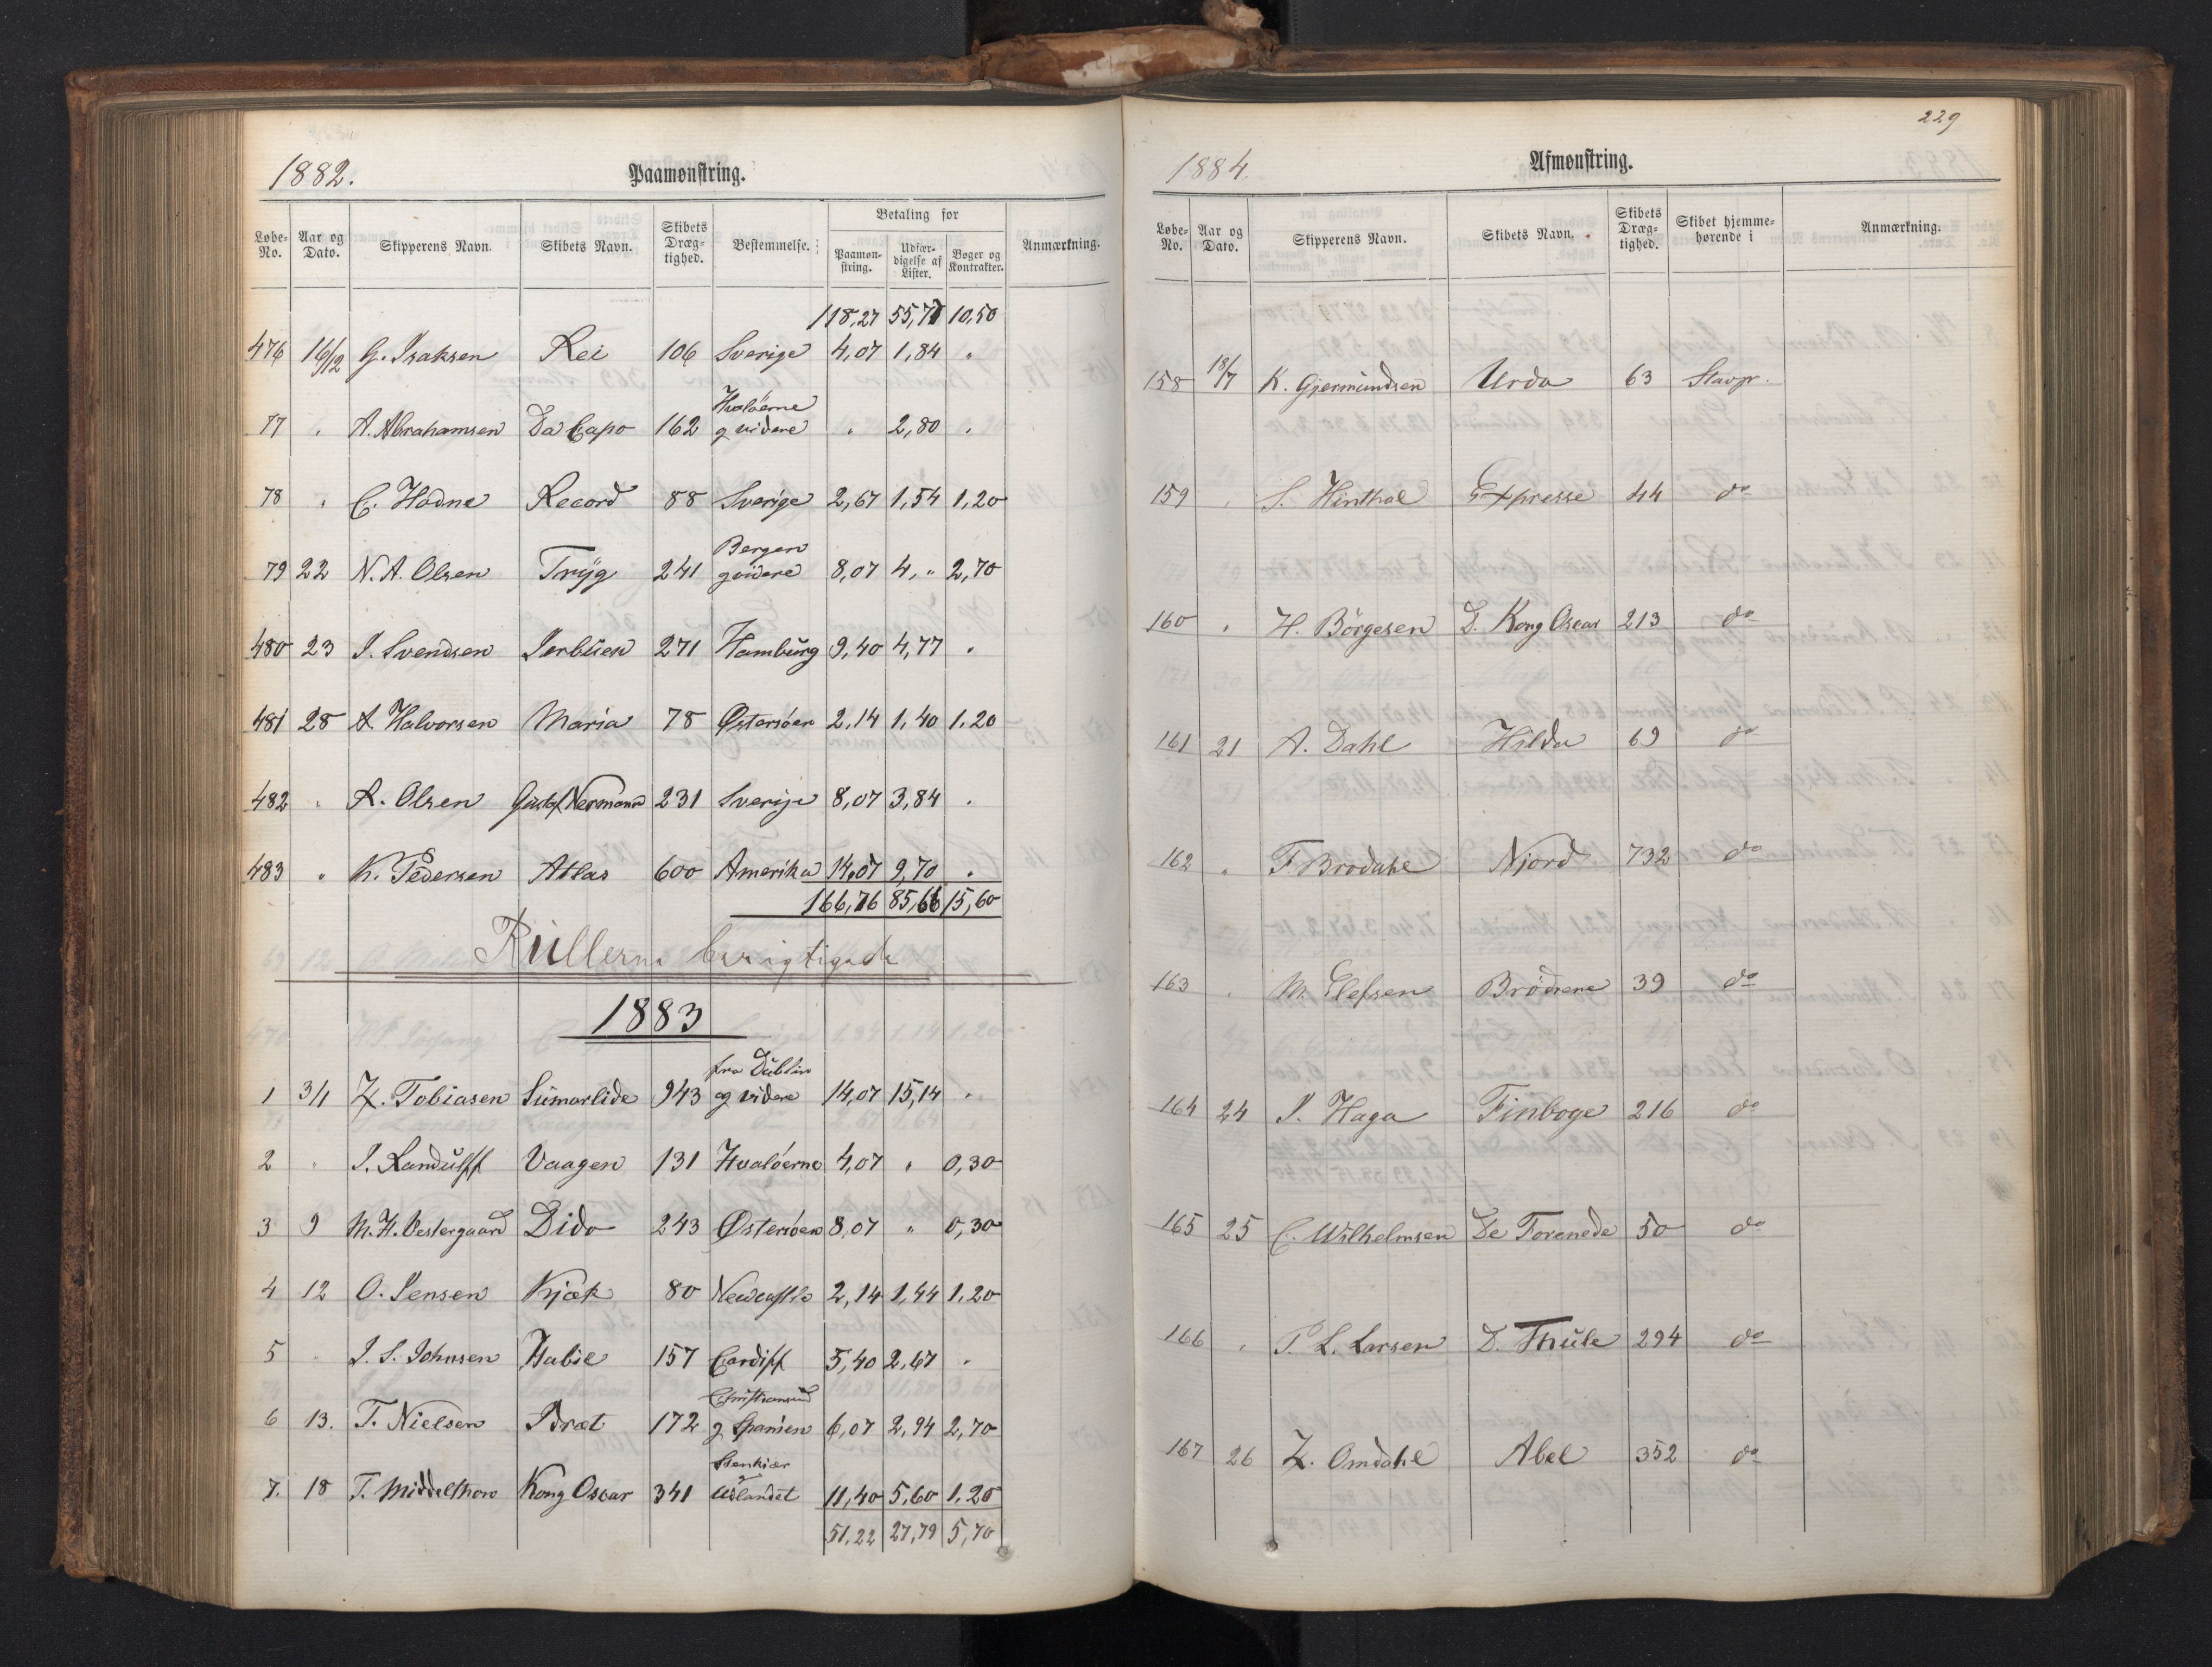 1882.
Paamønstring.
Løbe-No. Aar og Dato. Skipperens Navn. Skibets Navn. Skibets Dræg-tighed. Bestemmelse. Betaling for Paamøn-string. Udfær-digelse af Lister. Bøger og Kontrakter. Anmærkning.
118,27 55,77 10,50
476 16/12 G. Isaksen Rei 106 Sverige 4,07 1,84 "
77 " A. Abrahamsen Da Capo 162 Hvaløerne g videre " 2,80 "
78 " C. Hodne Record 88 Sverige 2,67 1,54 1,20
79 22 N. A. Olsen Tryg 241 Bergen g videre 8,07 4, " 2,70
480 23 J. Svendsen Jerbüen 271 Hamburg 9,40 4,77 "
481 28 A. Halvorsen Maria 78 Østersøen 2,14 1,40 1.20
482 " A. Olsen Gustaf Nermann 231 Sverige 8,07 3,84 "
483 " K. Pedersen Atlas 600 Amerika 14,07 9,70 "
166,76 85,66 15,60
Rullerne berigtigede
1883
1 3/1 Z. Tobiasen Sumarlide 943 fra Dublin og videre 14,07 15,14 "
2 " J. Randulff Vaagen 131 Hvaløerne 4,07 " 0,30
3 9 M. H. Vestergaard Dido 243 Østersøen 8,07 " 0,30
4 12 O. Jensen Kjæk 80 Newcastle 2,14 1,44 1.20
5 " J. S. Johnsen Habil 157 Cardiff 5,40 2,67 "
6 13. T. Nielsen Idræt 172 Christiansund g Spanien 6,07 2,94 2,70
7. 18 T. Middelthon Kong Oscar 341 Stenkiær g Udlandet 11,40 5,60 1.20
51,22 27,79 5,70
229
1884.
Afmønstring.
Løbe-No. Aar og Dato. Skipperens Navn. Skibets Navn. Skibets Dræg-tighed. Skibet hjemme-hørende i Anmærkning.
158 18/7 K. Gjermundsen Urda 63 Stavgr.
159 " S. Hinthal Expresse 44 do
160 " H. Börgesen D. Kong Oscar 213 do
161 21 A. Dahl Hilda 69 do
162 " F. Brodahl Njord 732 do
163 " M. Elefsen Brødrene 39 do
164 24 J. Haga Finboge 216 do
165 25 C. Wilhelmsen De Forenede 50 do
166 " P. L. Larsen D. Thule 294 do
167 26 Z. Omdahl Abel 352 do